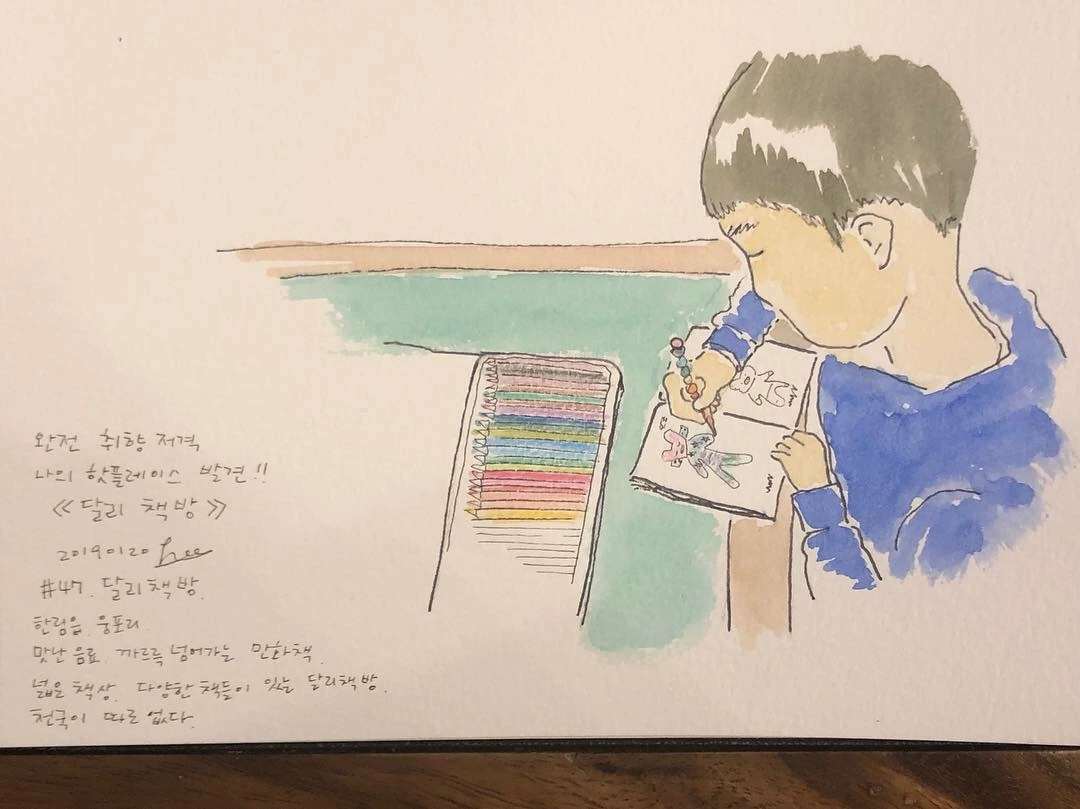 완전 취향 저격
나의 핫플레이스 발견!!
《달리 책방》
20190120 Lee
#47. 달리책방.
한림읍. 웅포리.
맛난 음료. 까르륵 넘어가는 만화책.
넓은 책상. 다양한 책들이 있는 달리책방.
천국이 따로 없다.